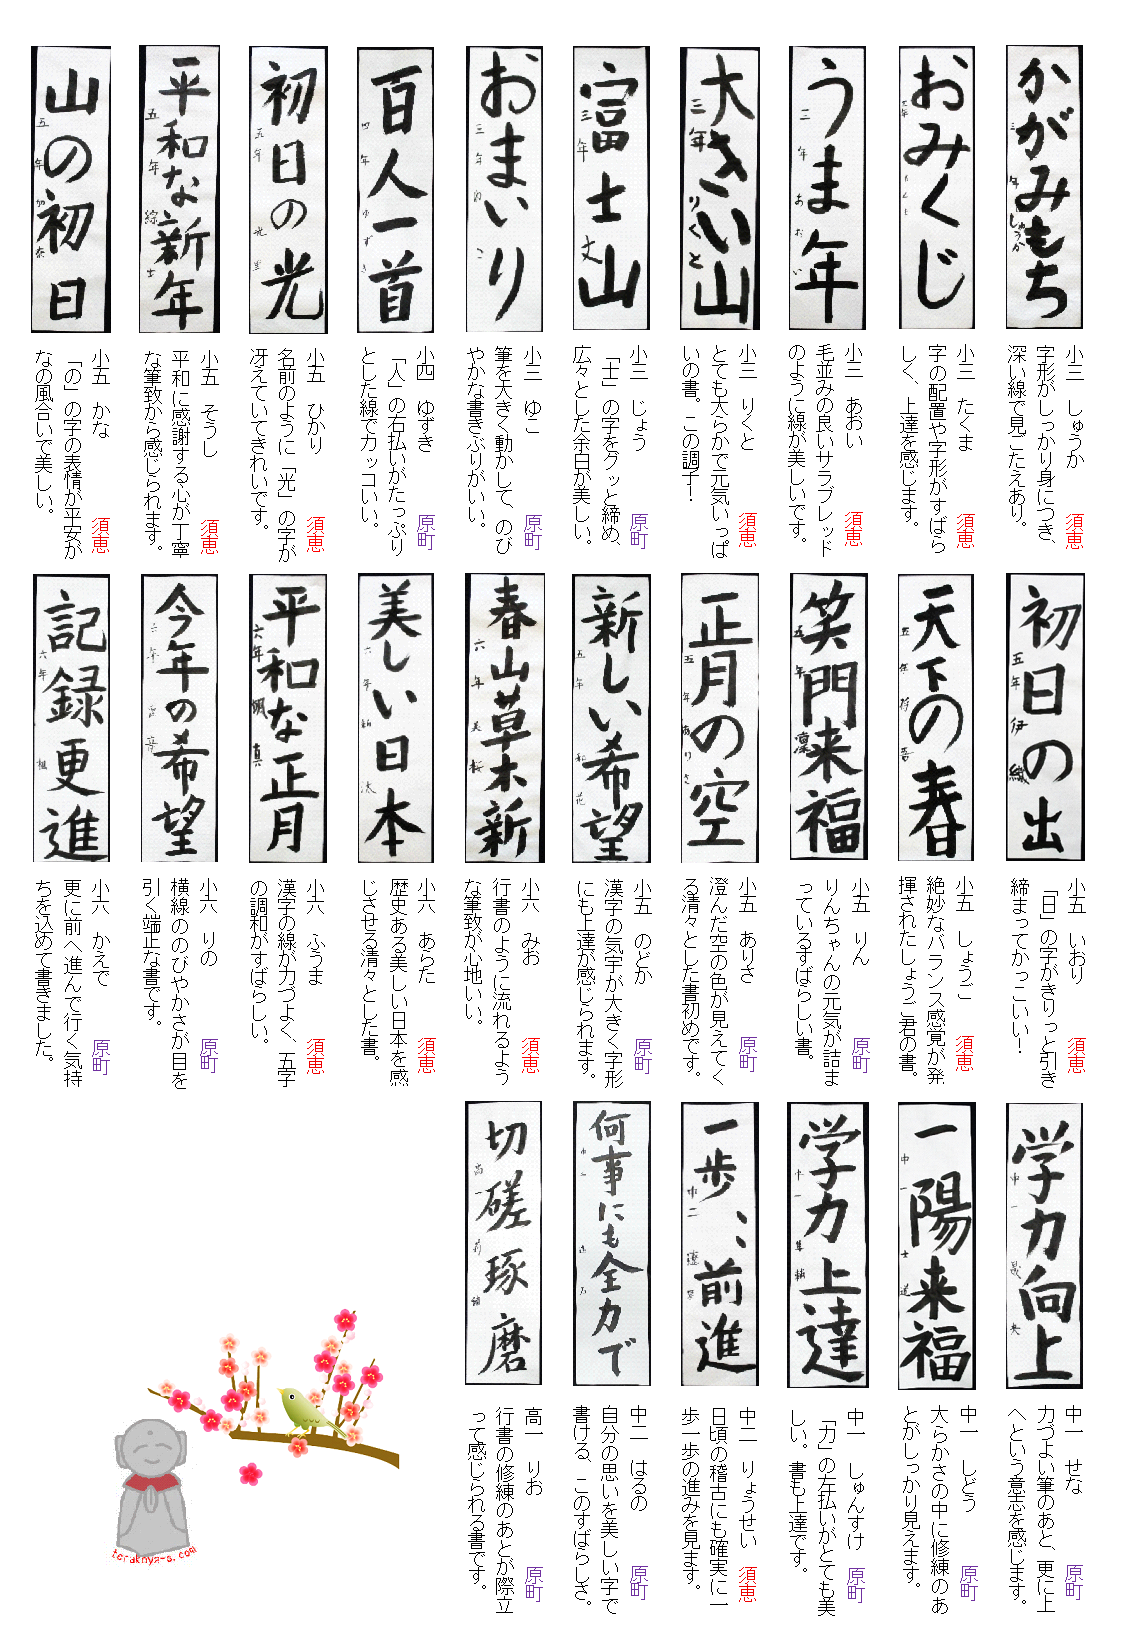 かがみもち
三年 しゅうか
小三 しゅうか 須恵
字形がしっかり身につき、
深い線で見ごたえあり。
おみくじ
三年
小三 たくま 須恵
字の配置や字形がすばら
しく、上達を感じます。
うま年
三年 あおい
小三 あおい 須恵
毛並みの良いサラブレッド
のように線が美しいです。
大きい山
三年 りくと
小三 りくと 須恵
とても大らかで元気いっぱ
いの書。この調子！
富士山
三年 丈
小三 じょう 原町
「士」の字をグッと締め、
広々とした余白が美しい。
おまいり
三年 ゆこ
小三 ゆこ 原町
筆を大きく動かして、のび
やかな書きぶりがいい。
百人一首
四年 ゆずき
小四 ゆずき 原町
「人」の右払いがたっぷり
とした線でカッコいい。
初日の光
五年 光里
小五 ひかり 須恵
名前のように「光」の字が
冴えていてきれいです。
平和な新年
五年 綜士
小五 そうし 須恵
平和に感謝する心が丁寧
な筆致から感じられます。
山の初日
五年 加奈
小五 かな 須恵
「の」の字の表情が平安が
なの風合いで美しい。
初日の出
五年 伊織
小五 いおり 須恵
「日」の字がきりっと引き
締まってかっこいい！
天下の春
五年 将吾
小五 しょうご 須恵
絶妙なバランス感覚が発
揮されたしょうご君の書。
笑門来福
五年 凛
小五 りん 原町
りんちゃんの元気が詰ま
っているすばらしい書。
正月の空
五年 ありさ
小五 ありさ 原町
澄んだ空の色が見えてく
る清々とした書初めです。
新しい希望
五年 和花
小五 のどか 原町
漢字の気宇が大きく字形
にも上達が感じられます。
春山草木新
六年 美桜
小六 みお 須恵
行書のように流れるよう
な筆致が心地いい。
美しい日本
六年 新汰
小六 あらた 須恵
歴史ある美しい日本を感
じさせる清々とした書。
平和な正月
六年 颯真
小六 ふうま 須恵
漢字の線が力づよく、五字
の調和がすばらしい。
今年の希望
六年
小六 りの 原町
横線ののびやかさが目を
引く端正な書です。
記録更進
六年 楓
小六 かえで 原町
更に前へ進んで行く気持
ちを込めて書きました。
学力向上
中一 晟央
中一 せな 原町
力づよい筆のあと、更に上
へという意志を感じます。
一陽来福
中一 士道
中一 しどう 原町
大らかさの中に修練のあ
とがしっかり見えます。
学力上達
中一 隼輔
中一 しゅんすけ 原町
「力」の左払いがとても美
しい。書も上達です。
一歩、、前進
中二
中二 りょうせい 須恵
日頃の稽古にも確実に一
歩一歩の進みを見ます。
何事にも全力で
中二
中二 はるの 原町
自分の思いを美しい字で
書ける、このすばらしさ。
切磋琢磨
高一 莉緒
高一 りお 原町
行書の修練のあとが際立
って感じられる書です。
terakoya-s.com